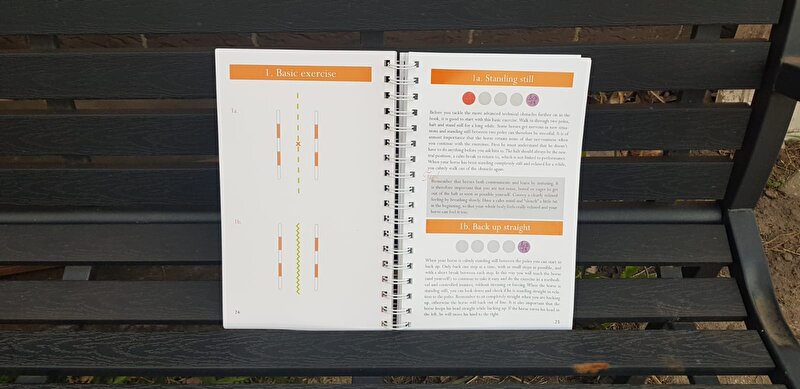 1. Basic exercise
1a.
1b.
24
1a. Standing still
Before you tackle the more advanced technical obstacles further on in the
book, it is good to start with this basic exercise. Walk in through two poles,
halt and stand still for a long while. Some horses get nervous in new situ-
ations and standing still between two poles can therefore be stressful. It is of
utmost importance that the horse retains none of that nervousness when
you continue with the exercises. First he must understand that he doesn't
have to do anything before you ask him to. The halt should always be the neu-
tral position; a calm break to return to, which is not linked to performance.
When your horse has been standing completely still and relaxed for a while,
you calmly walk out of the obstacle again.
Remember that horses both communicate and learn by imitating. It
is therefore important that you are not tense, bored or eager to get
out of the halt as soon as possible yourself. Convey a clearly relaxed
feeling by breathing slowly. Have a calm mind and "slouch" a little bit
in the beginning, so that your whole body feels really relaxed and your
horse can feel it too.
1b. Back up straight
When your horse is calmly standing still between the poles you can start to
back up. Only back one step at a time, with as small steps as possible, and
with a short break between each step. In this way you will teach the horse
(and yourself) to continue to take it easy and do the exercise in a method-
ical and controlled manner, without stressing or forcing. When the horse is
standing still, you can look down and check if he is standing straight in rela-
tion to the poles. Remember to sit completely straight when you are backing
up, otherwise the horse will back out of line. It is also important that the
horse keeps his head straight while backing up. If the horse turns his head to
the left, he will move his hind to the right.
25